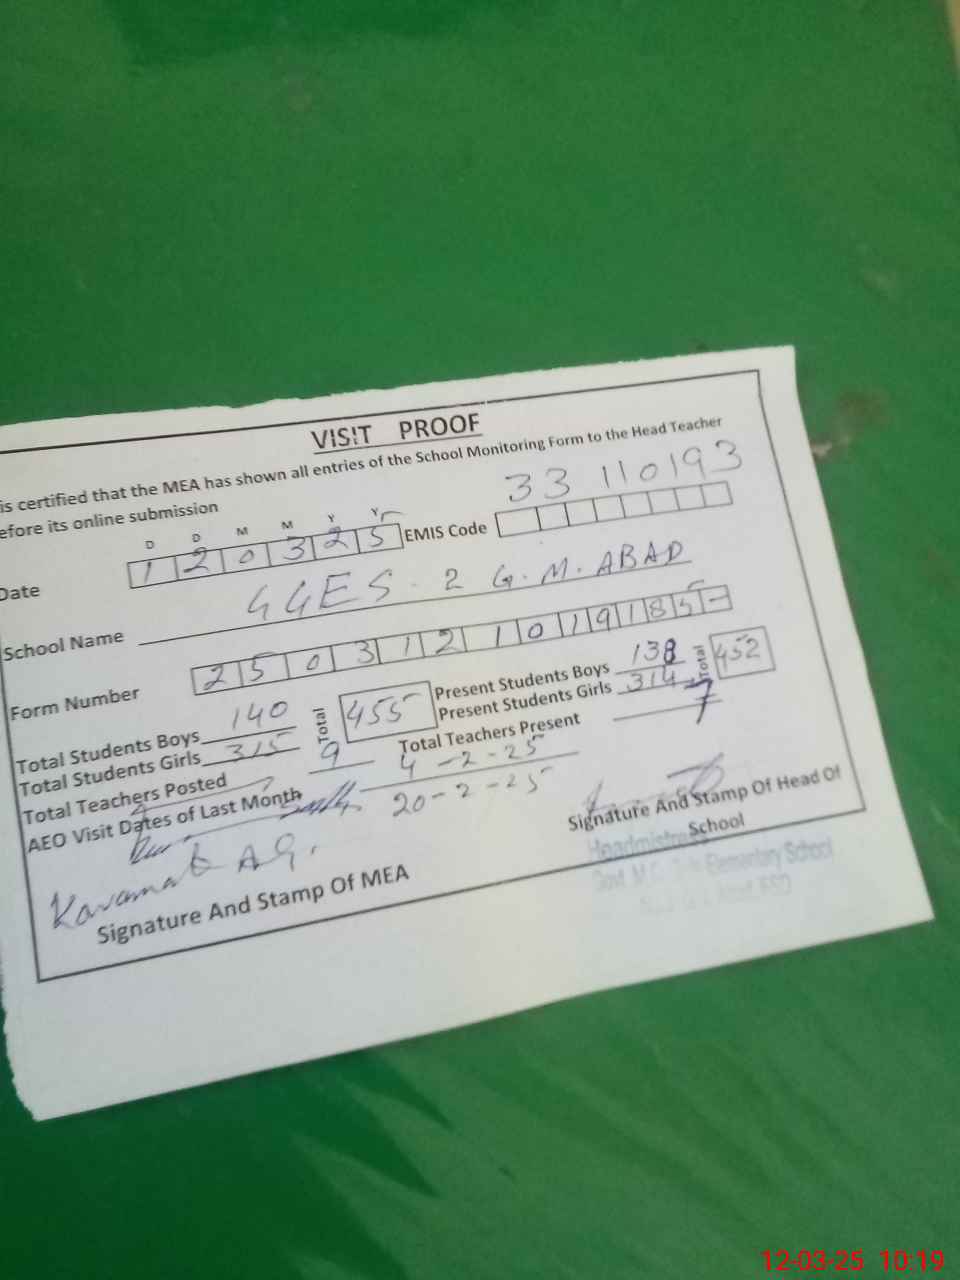 VISIT PROOF
is certified that the MEA has shown all entries of the School Monitoring Form to the Head Teacher
efore its online submission
D D M M Y Y
Date 1 2 0 3 2 5 EMIS Code 33 110193
School Name GGES - 2 G.M.ABAD
Form Number 2 5 0 3 1 2 1 0 1 9 1 8 5 -
Total Students Boys 140 Total 455 Present Students Boys 138 Total 452
Total Students Girls 315 Present Students Girls 314
Total Teachers Posted 9 Total Teachers Present 7
AEO Visit Dates of Last Month 4-2-25
20-2-25
Signature And Stamp Of Head Of
School
Headmistress
Govt M.C. Elementary School
Signature And Stamp Of MEA
12-03-25 10:19